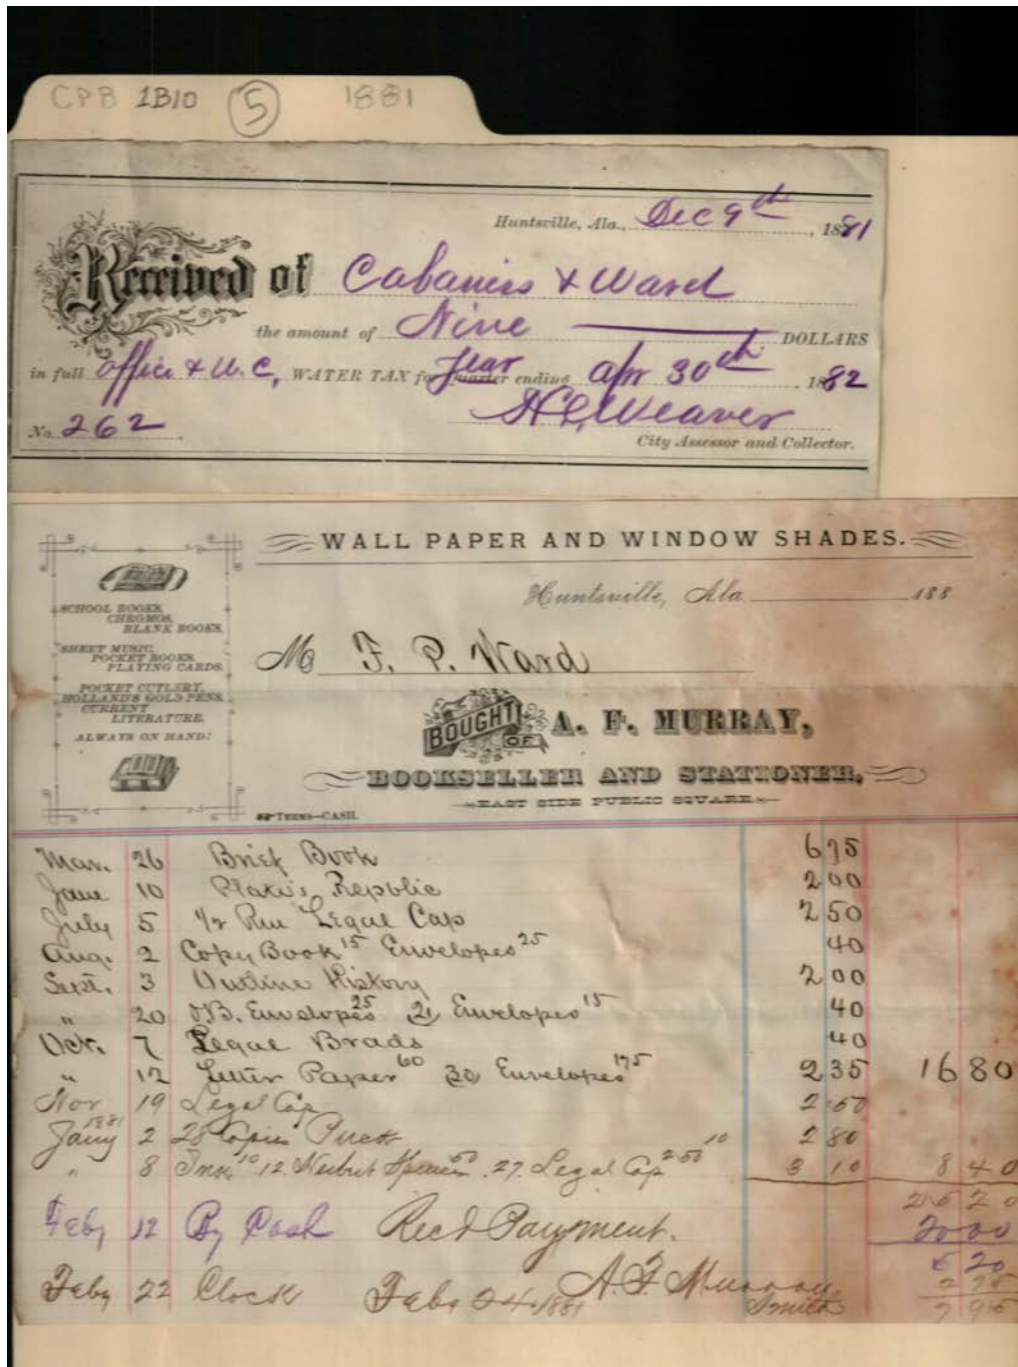 CPB 1B10 5 1881
Huntsville, Ala., Dec 9th, 1881
Received of Cabaniss & Ward
the amount of Nine DOLLARS
in full office & W.C., WATER TAX for Quarter Year ending Apr 30th, 1882
No. 262 Weaver
City Assessor and Collector.
WALL PAPER AND WINDOW SHADES.
Huntsville, Ala 188
SCHOOL BOOKS,
CHROMOS,
BLANK BOOKS.
SHEET MUSIC,
POCKET BOOKS,
PLAYING CARDS.
POCKET CUTLERY,
HOLLAND'S GOLD PENS,
CURRENT
LITERATURE.
ALWAYS ON HAND!
M F. P. Ward
BOUGHT OF A. F. MURRAY,
BOOKSELLER AND STATIONER,
EAST SIDE PUBLIC SQUARE
TERMS—CASH.
Mar. 26 Brief Book 6 75
June 10 Plato's Republic 2 00
July 5 1/2 Rm Legal Cap 2 50
Aug. 2 Copy Book 15 Envelopes 25 40
Sept. 3 Outline History 2 00
" 20 Envelopes 25 Envelopes 15 40
Oct. 7 Legal Brads 40
" 12 Letter Paper 60 Envelopes 175 2 35 16 80
Nov 19 Legal Cap 2 50
1881
Jany 2 28 Copies Puck 10 2 80
" 8 10 12 50 27 Legal Cap 2 50 3 10 8 40
25 20
Feby 12 By Cash Recd Payment. 20 00
5 20
Feby 22 Clock Feby 24 1881 A. F. Murray 2 75
Smith 7 95